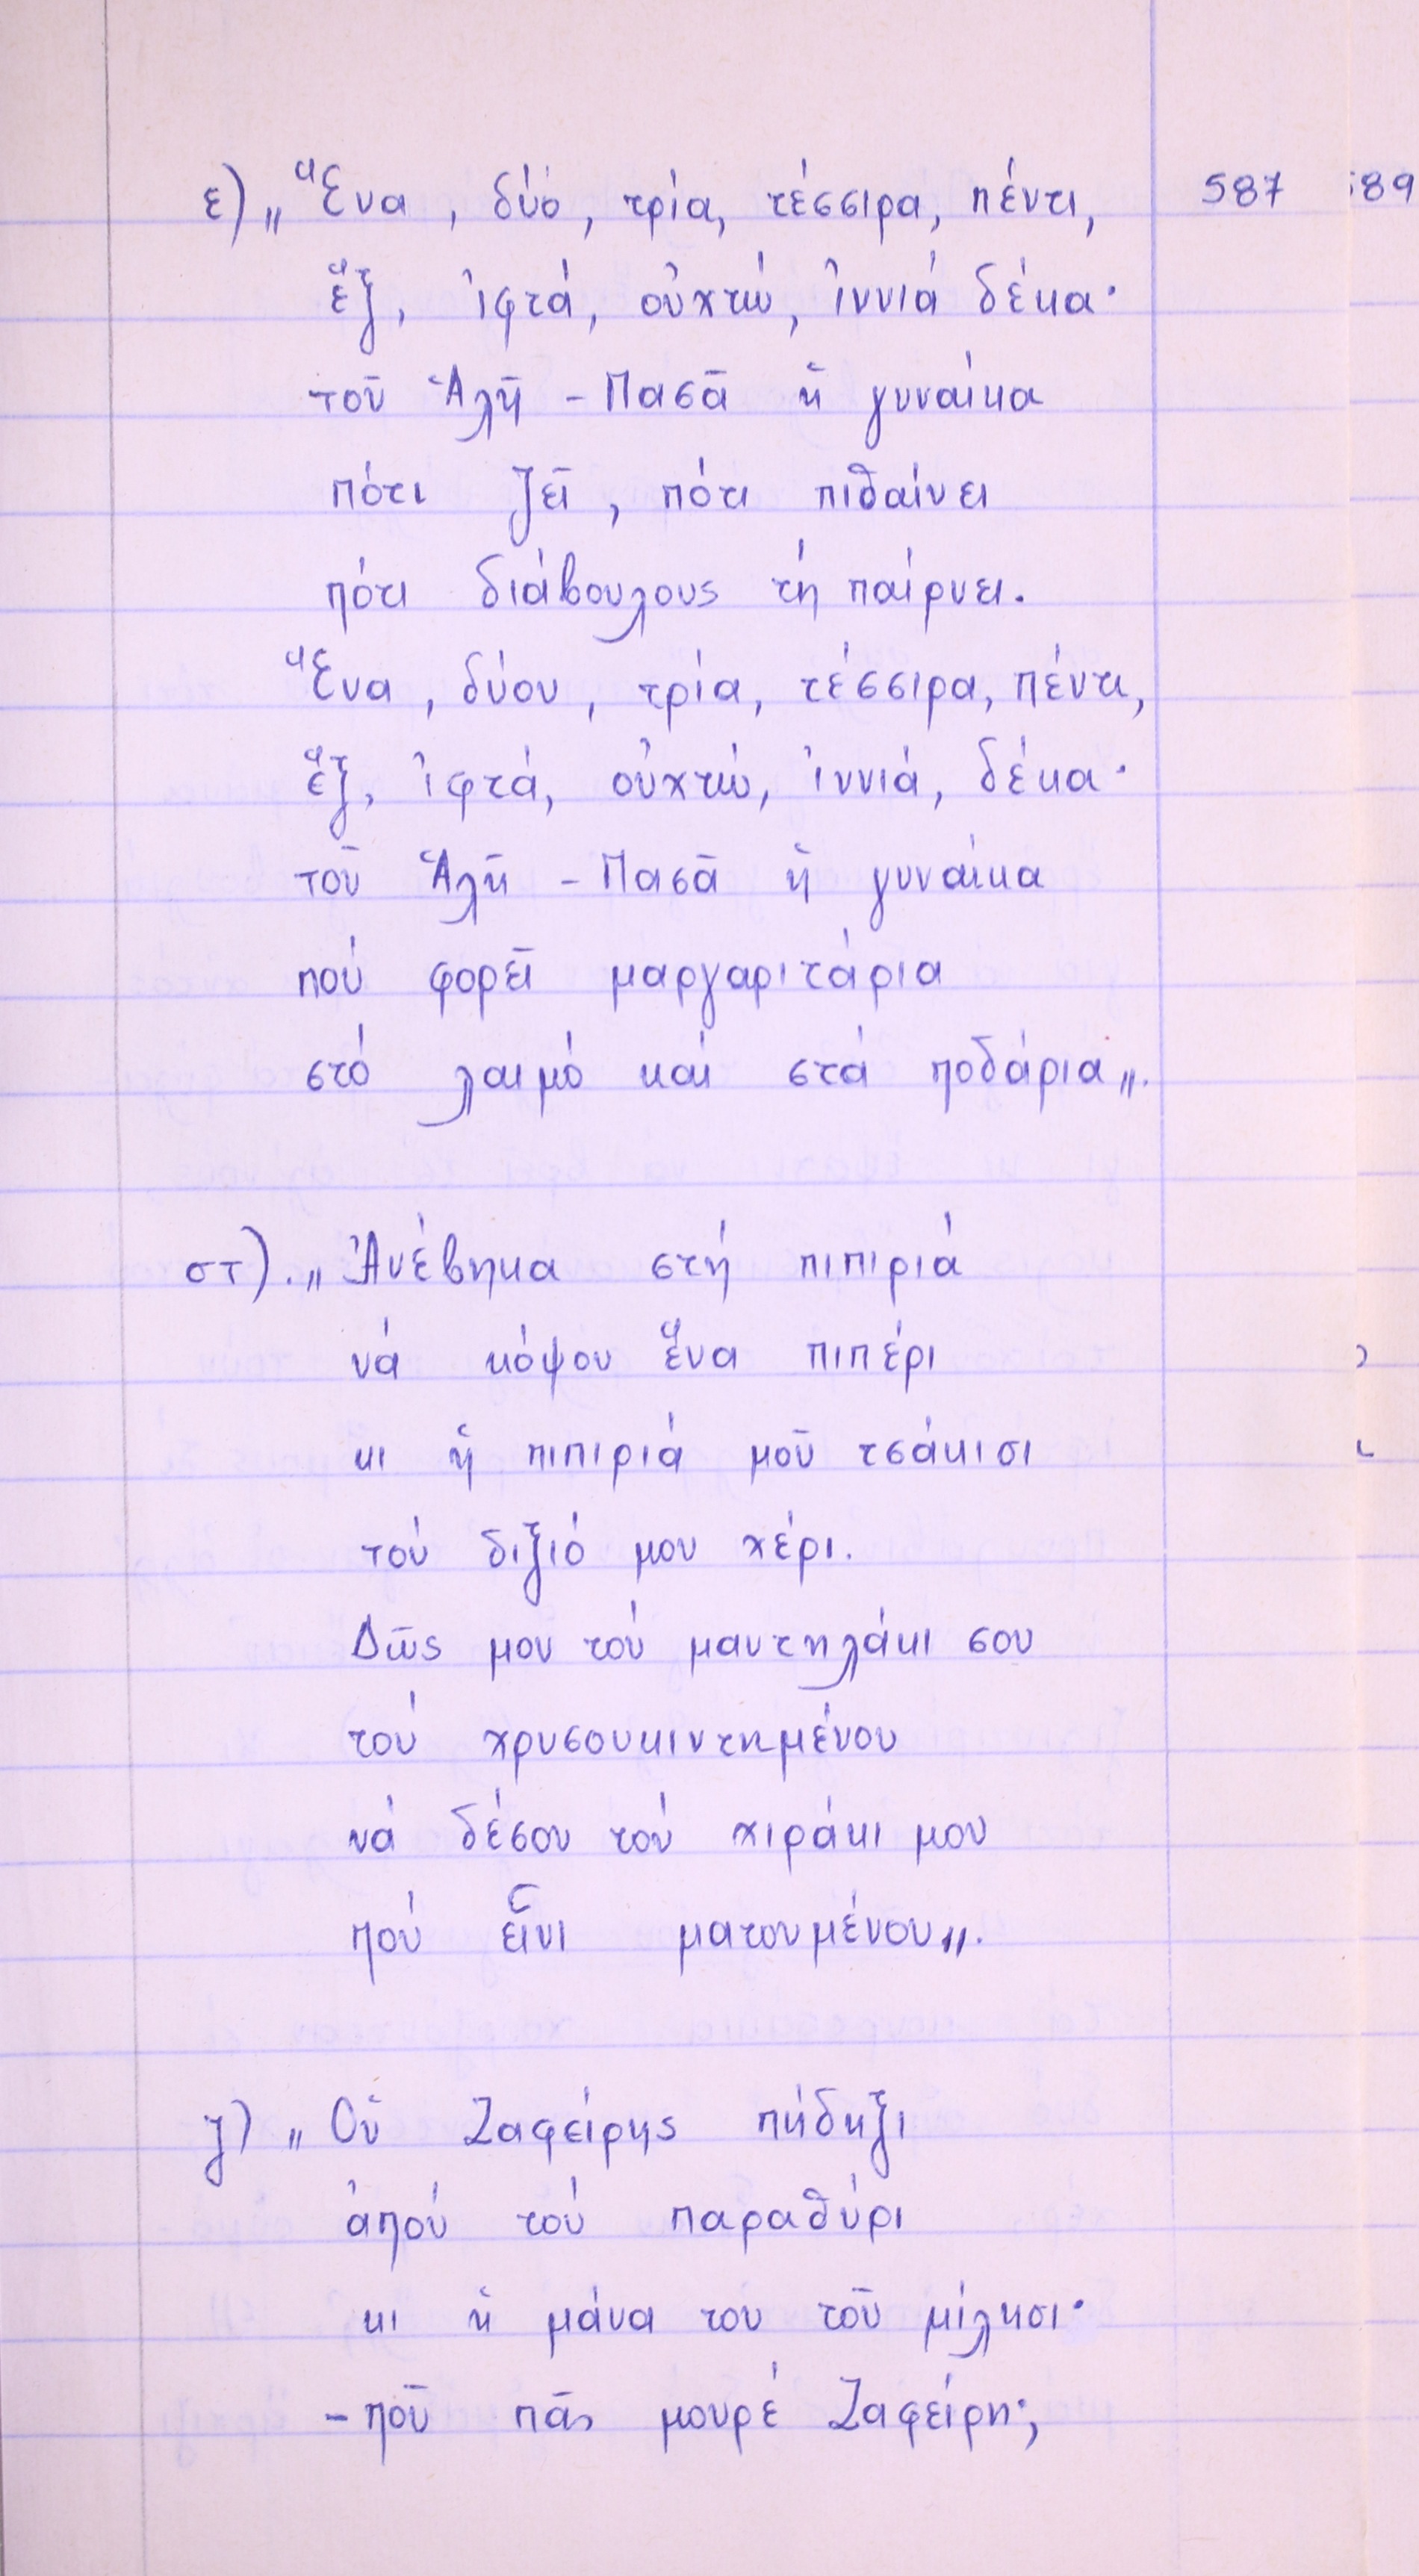 587
ε) „Ἕνα, δύο, τρία, τέσσιρα, πέντι,
ἕξ, ἰφτά, οὐχτώ, ἰννιά δέκα·
τοῦ Ἀλῆ - Πασᾶ ἡ γυναίκα
πότι ζεῖ, πότι πιθαίνει
πότι διάβουλους τή παίρνει.
Ἕνα, δύου, τρία, τέσσιρα, πέντι,
ἕξ, ἰφτά, οὐχτώ, ἰννιά, δέκα·
τοῦ Ἀλῆ - Πασᾶ ἡ γυναίκα
πού φορεῖ μαργαριτάρια
στό λαιμό καί στά ποδάρια„.
στ). „Ἀνέβηκα στή πιπιριά
νά κόψου ἕνα πιπέρι
κι ἡ πιπιριά μοῦ τσάκισι
τού διξιό μου χέρι.
Δῶς μου τού μαντηλάκι σου
τού χρυσουκιντημένου
νά δέσου τού χιράκι μου
πού εἶνι ματουμένου„.
ζ) „Οὑ Ζαφείρης πήδηξι
ἀπού τού παραθύρι
κι ἡ μάνα του τοῦ μίλησι·
- ποῦ πᾶς μουρέ Ζαφείρη;